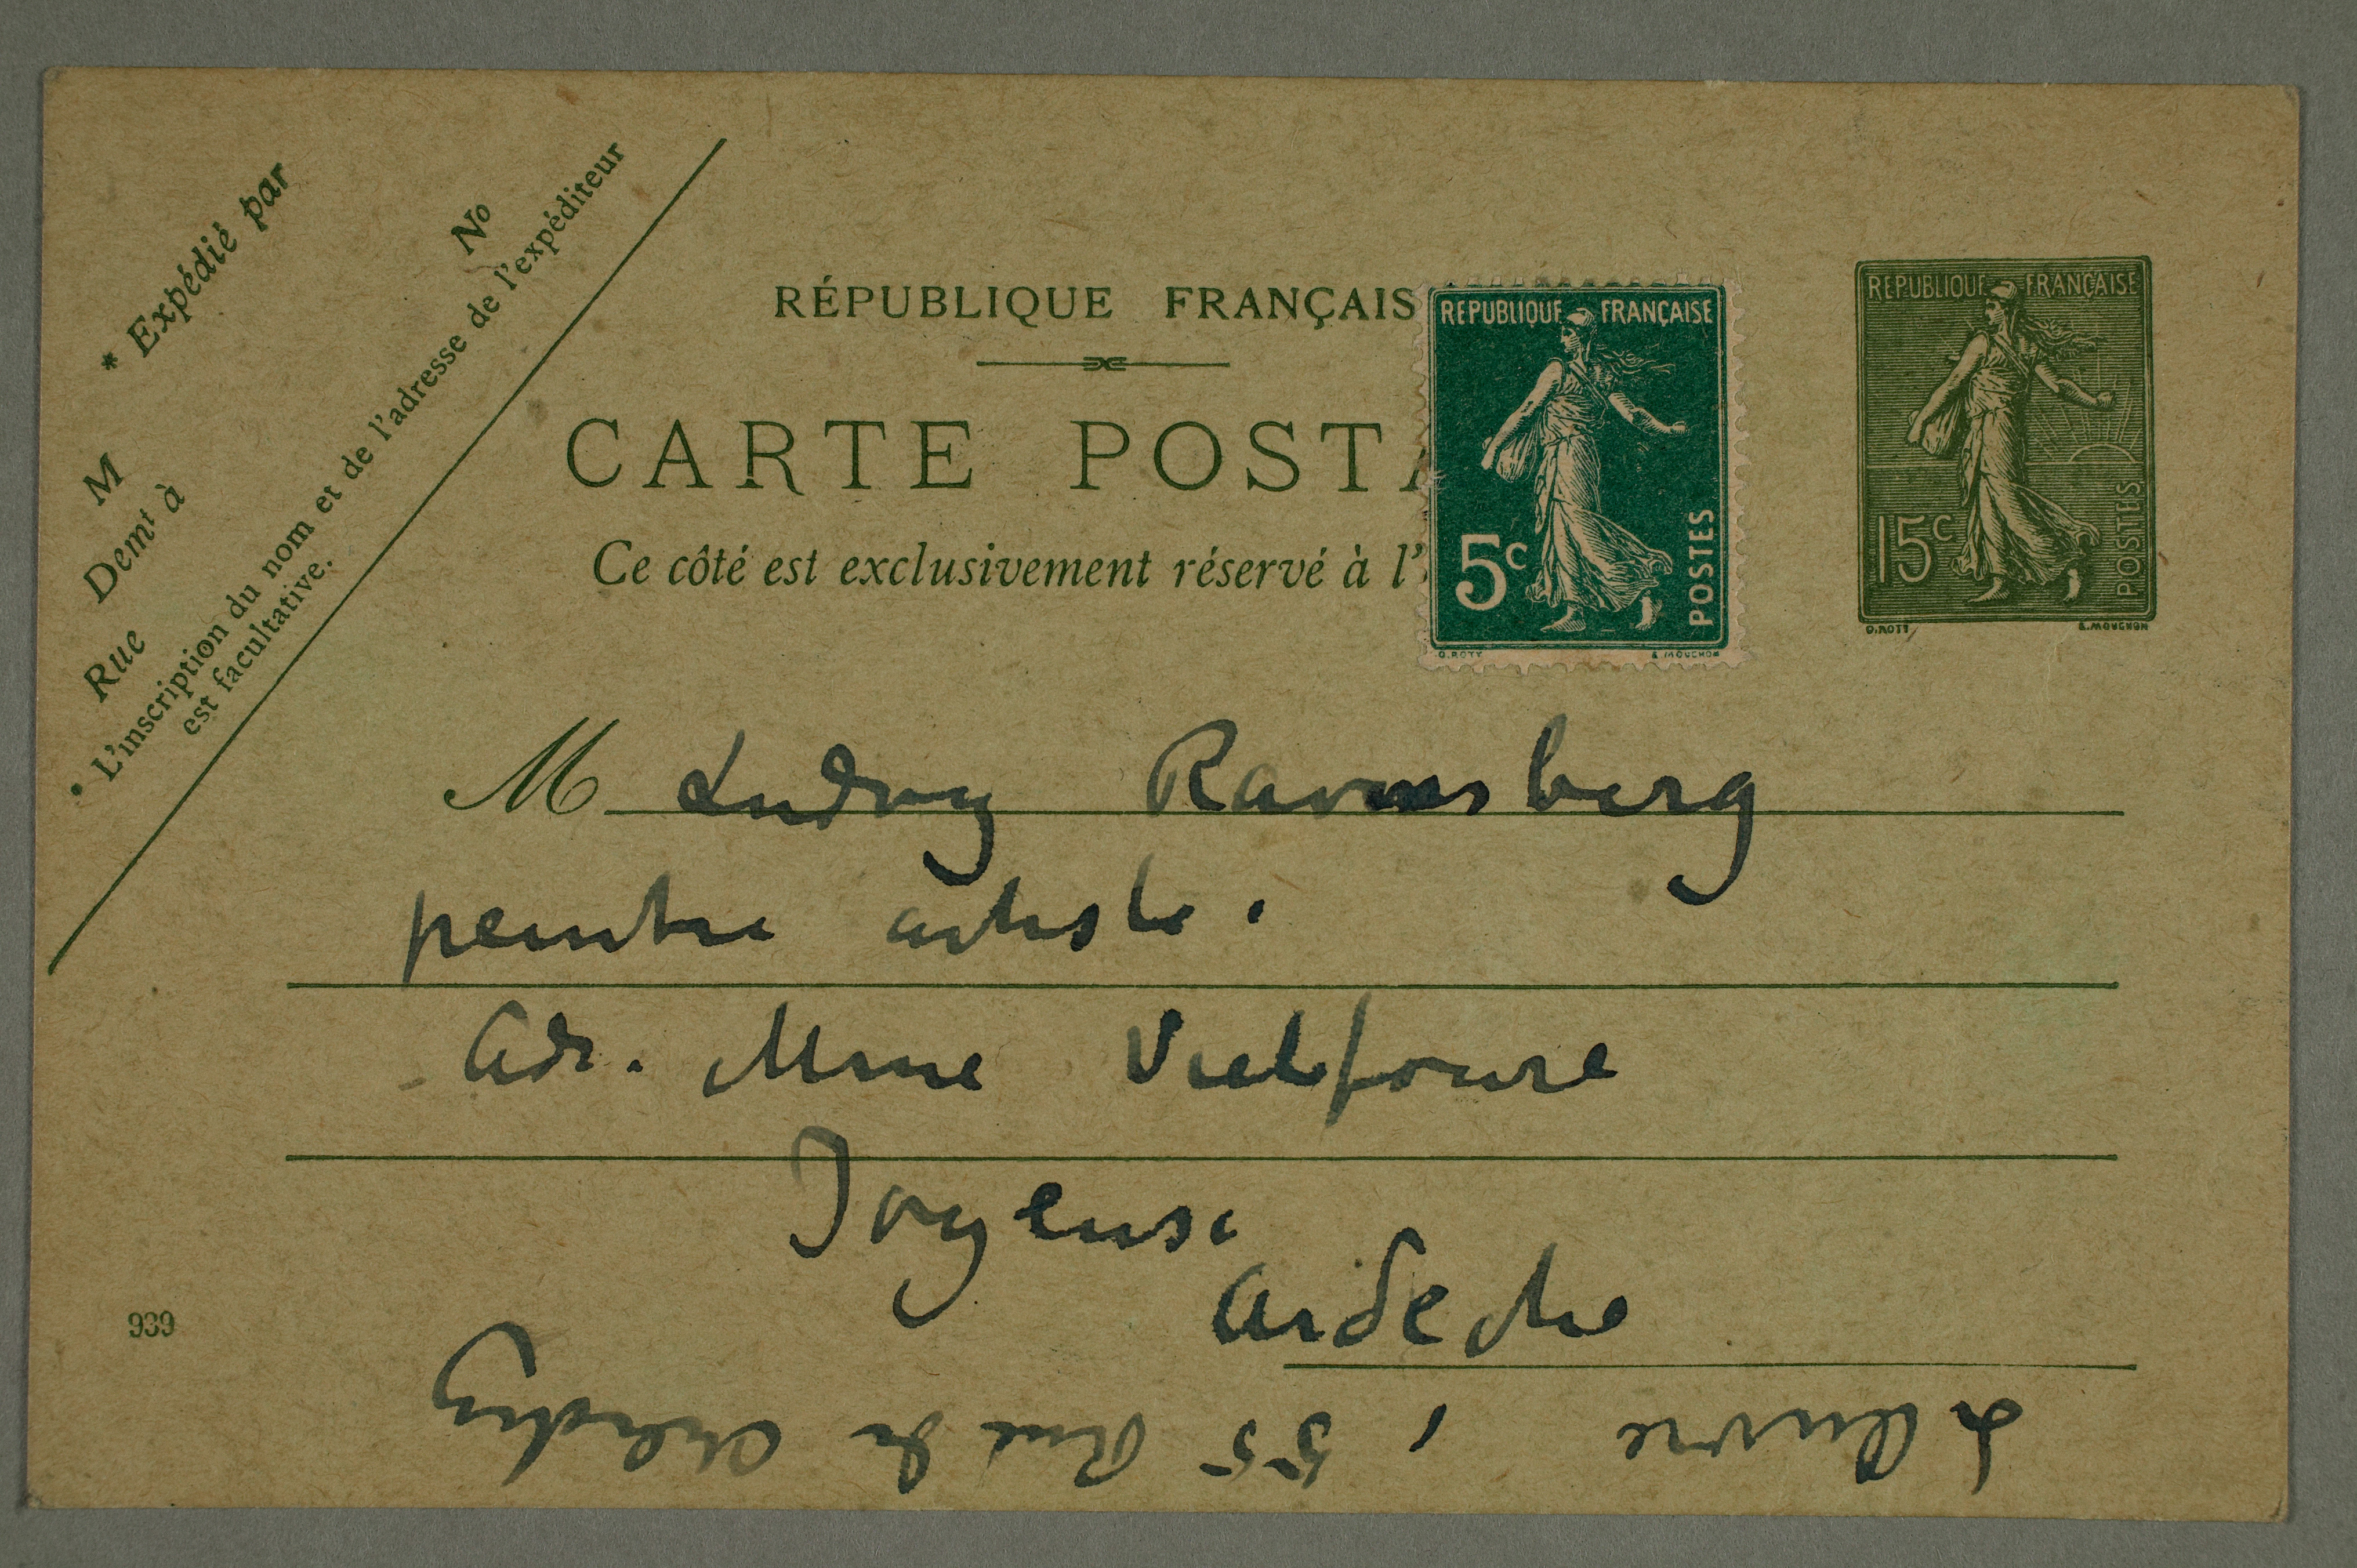 * Expédié par
M
Demt à
Rue
No
* L'inscription du nom et de l'adresse de l'expéditeur
est facultative.
RÉPUBLIQUE FRANÇAIS
CARTE POSTA
Ce côté est exclusivement réservé à l'
REPUBLIQUE FRANÇAISE
5c
POSTES
O.ROTY
E.MOUCHON
REPUBLIQUE FRANÇAISE
15c
POSTES
O.ROTY
E.MOUCHON
M Ludvig Ravensberg
peintre artiste.
Adr. Mme Vielfoure
Joyeuse
Ardeche
939
55 Rue du Cherche